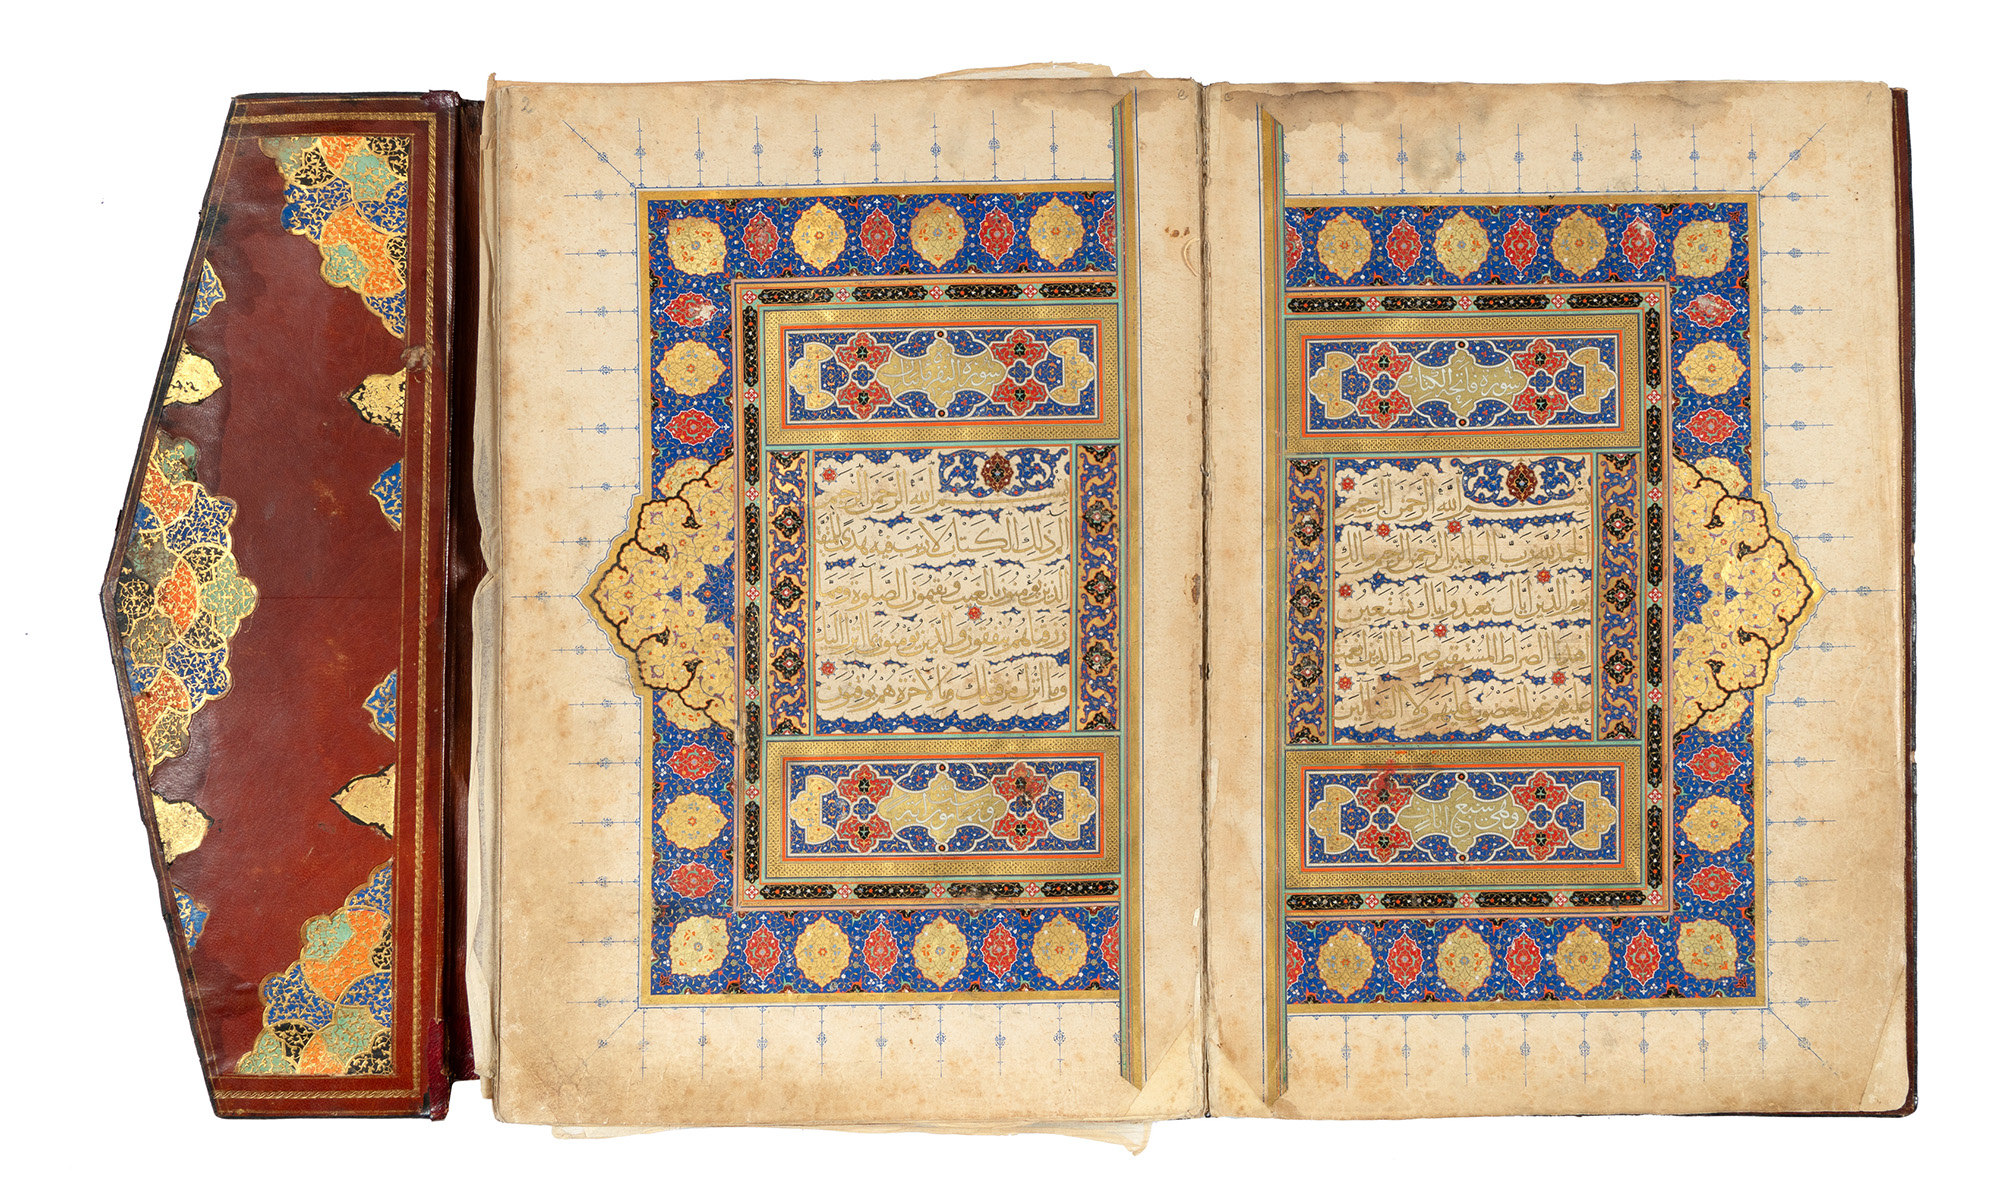 سورة فاتحة الكتاب
بسم الله الرحمن الرحيم
الحمد لله رب العالمين الرحمن الرحيم مالك
يوم الدين اياك نعبد واياك نستعين
اهدنا الصراط المستقيم صراط الذين انعمت
عليهم غير المغضوب عليهم ولا الضالين
وهي سبع ايات
2
سورة البقرة مايتان
بسم الله الرحمن الرحيم
الم ذلك الكتاب لا ريب فيه هدى للمتقين
الذين يؤمنون بالغيب ويقيمون الصلوة ومما
رزقناهم ينفقون والذين يؤمنون بما انزل اليك
وما انزل من قبلك وبالاخرة هم يوقنون